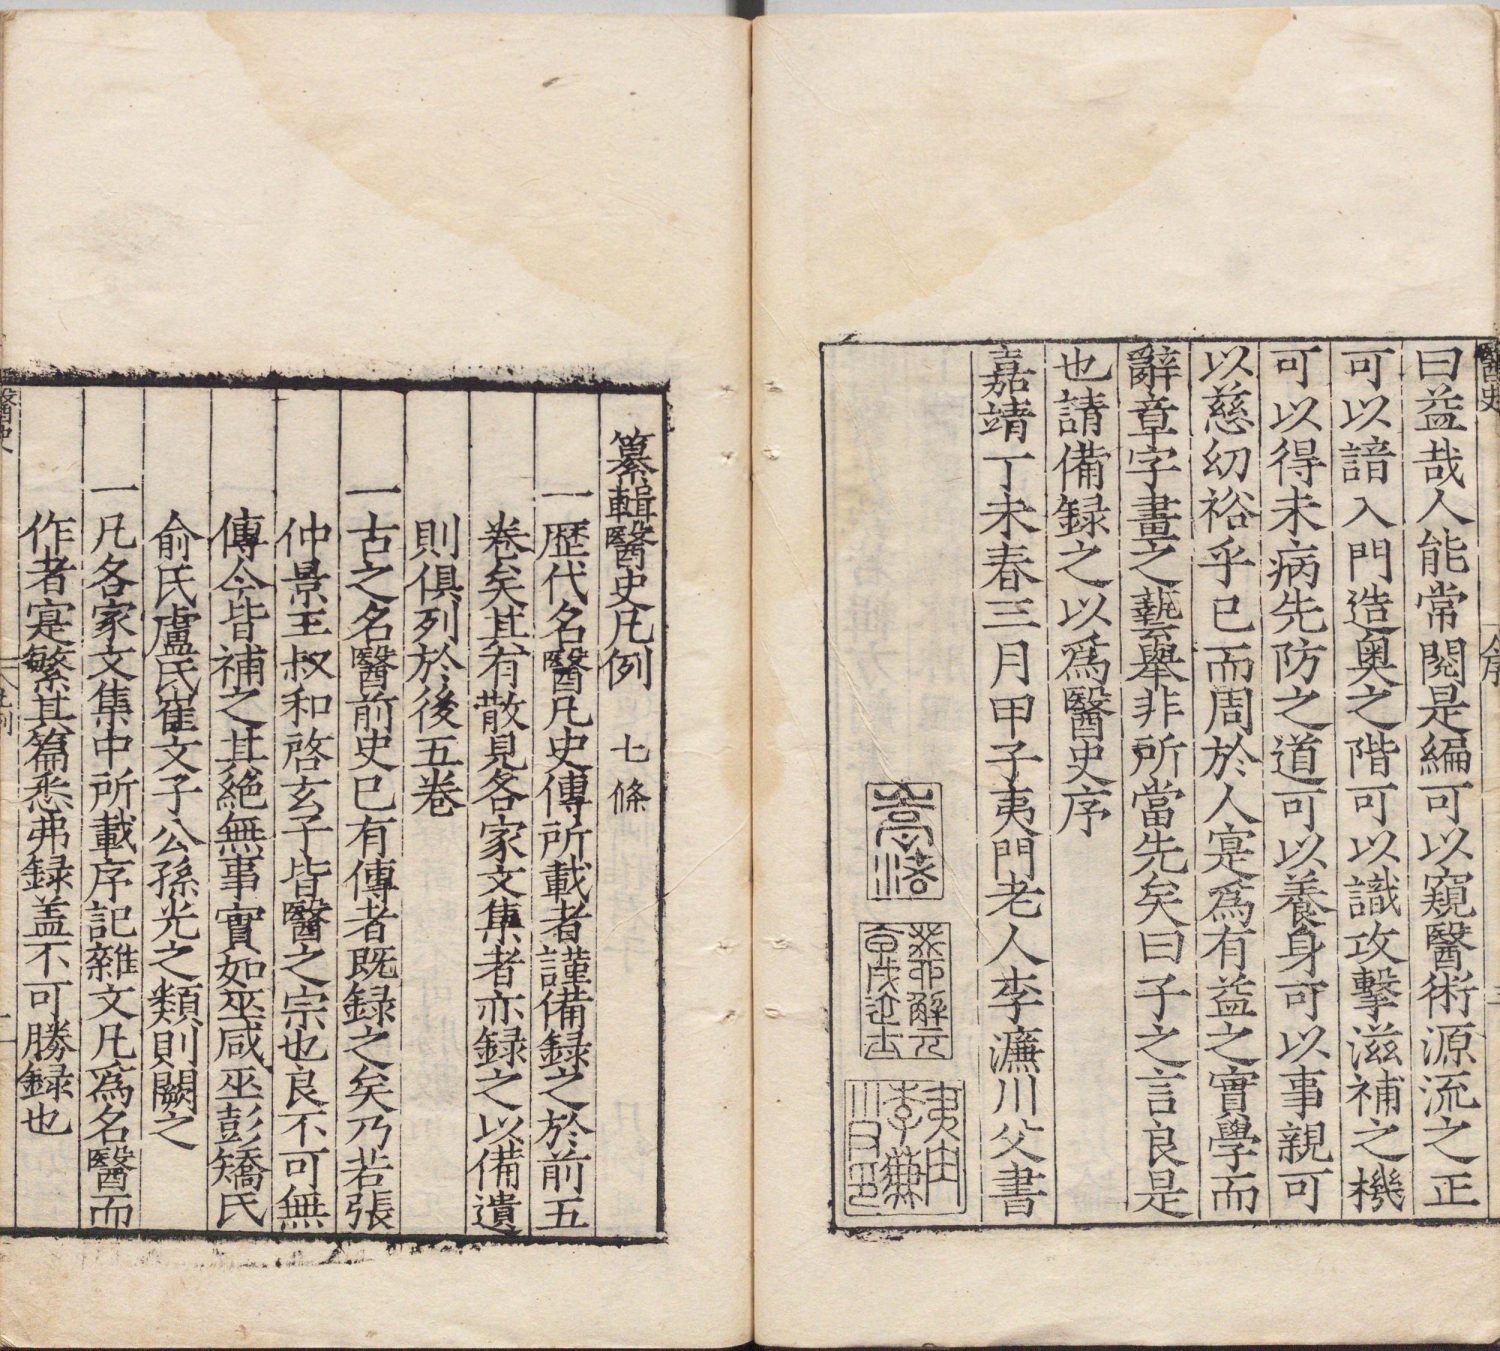 曰益哉人能常閱是編可以窺醫術源流之正
可以諳入門造奥之階可以識攻擊滋補之機
可以得未病先防之道可以養身可以事親可
以慈幼裕乎已而周於人寔爲有益之實學而
辭章字畫之藝舉非所當先矣曰子之言良是
也請備録之以爲醫史序
嘉靖丁未春三月甲子夷門老人李濂川父書
嵩渚
夷門
李濂
川父印
纂輯醫史凡例 七條
一歴代名醫凡史傳所載者謹備録之於前五
卷矣其有散見各家文集者亦録之以備遺
則俱列於後五卷
一古之名醫前史已有傳者既録之矣乃若張
仲景王叔和啓玄子皆醫之宗也良不可無
傳今皆補之其絶無事實如巫咸巫彭矯氏
俞氏盧氏崔文子公孫光之類則闕之
一凡各家文集中所載序記雜文凡爲名醫而
作者寔繁其篇悉弗録盖不可勝録也
醫史